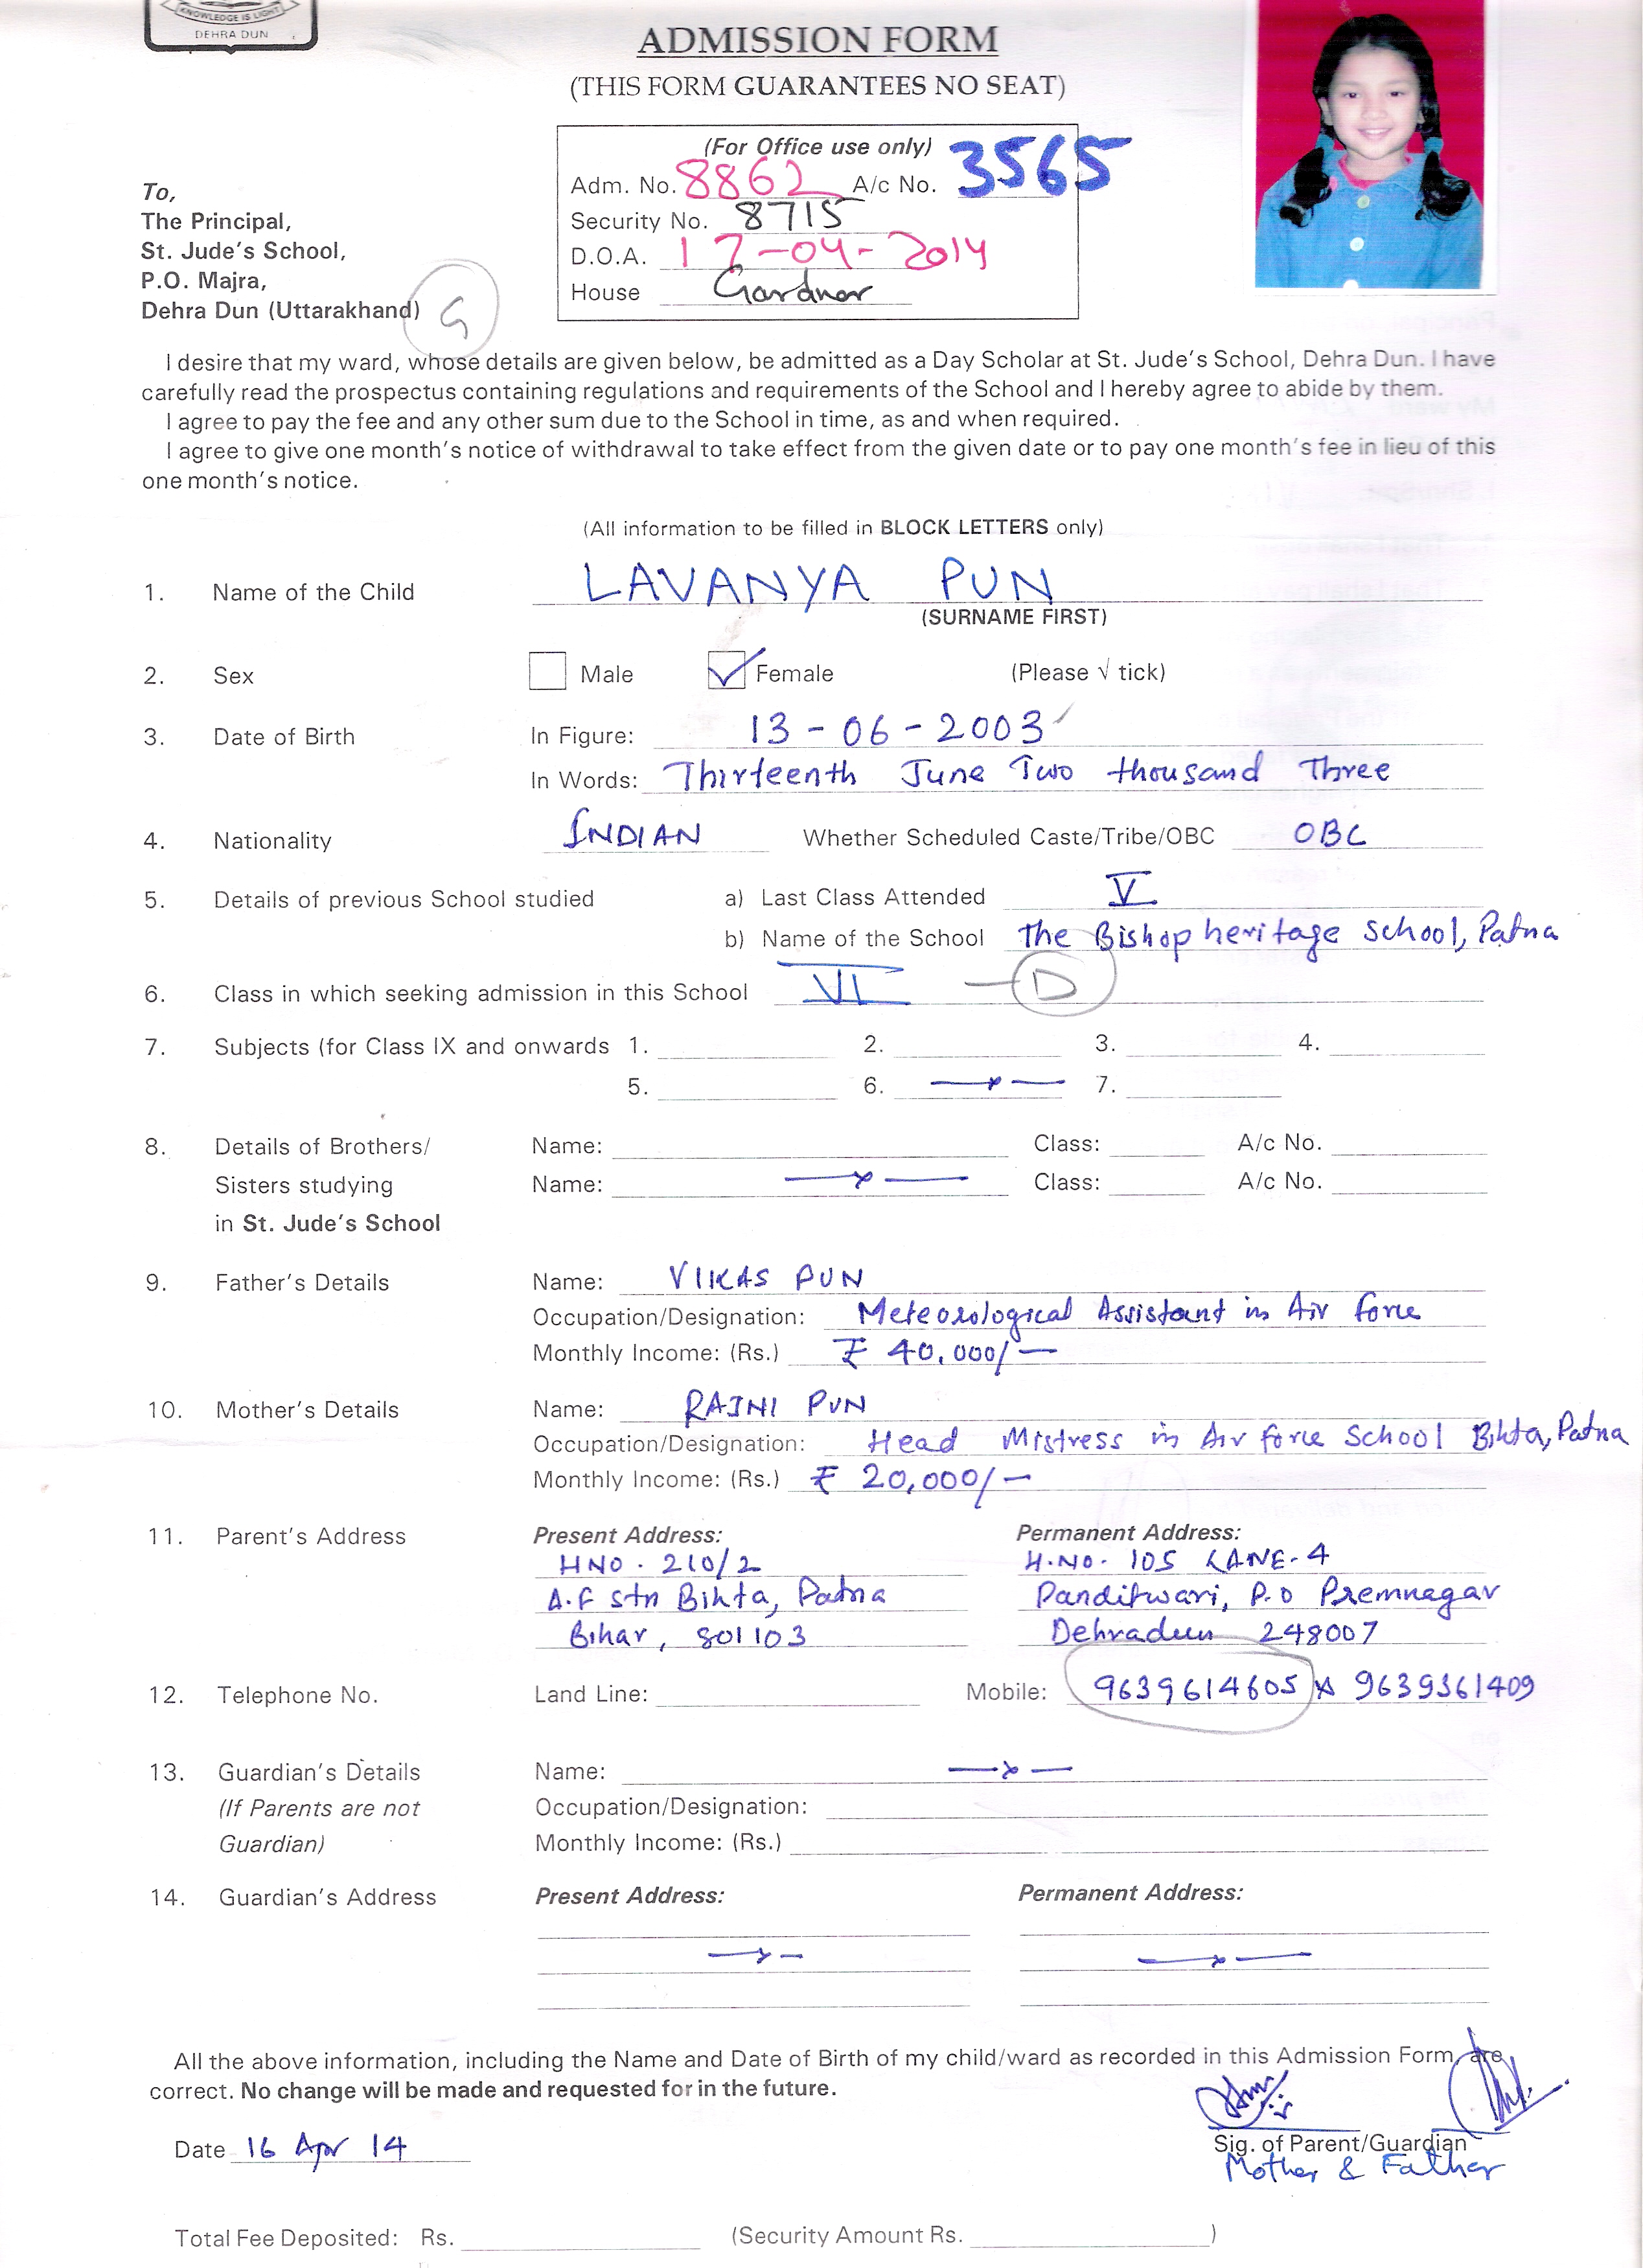 KNOWLEDGE IS LIGHT
DEHRA DUN
ADMISSION FORM
(THIS FORM GUARANTEES NO SEAT)
(For Office use only)
Adm. No. 8862 A/c No. 3565
Security No. 8715
D.O.A. 17-04-2014
House Gardner
To,
The Principal,
St. Jude's School,
P.O. Majra,
Dehra Dun (Uttarakhand) G
I desire that my ward, whose details are given below, be admitted as a Day Scholar at St. Jude's School, Dehra Dun. I have
carefully read the prospectus containing regulations and requirements of the School and I hereby agree to abide by them.
I agree to pay the fee and any other sum due to the School in time, as and when required.
I agree to give one month's notice of withdrawal to take effect from the given date or to pay one month's fee in lieu of this
one month's notice.
(All information to be filled in BLOCK LETTERS only)
1. Name of the Child LAVANYA PUN
(SURNAME FIRST)
2. Sex Male Female (Please √ tick)
3. Date of Birth In Figure: 13-06-2003
In Words: Thirteenth June Two thousand Three
4. Nationality INDIAN Whether Scheduled Caste/Tribe/OBC OBC
5. Details of previous School studied a) Last Class Attended V
b) Name of the School The Bishop heritage School, Patna
6. Class in which seeking admission in this School VI - D
7. Subjects (for Class IX and onwards 1. 2. 3. 4.
5. 6. —x— 7.
8. Details of Brothers/ Name: Class: A/c No.
Sisters studying Name: —x— Class: A/c No.
in St. Jude's School
9. Father's Details Name: VIKAS PUN
Occupation/Designation: Meteorological Assistant in Air force
Monthly Income: (Rs.) ₹ 40,000/-
10. Mother's Details Name: RAJNI PUN
Occupation/Designation: Head Mistress in Air force School Bihta, Patna
Monthly Income: (Rs.) ₹ 20,000/-
11. Parent's Address Present Address: Permanent Address:
HNO. 210/2 H.NO. 105 LANE-4
A.F Stn Bihta, Patna Panditwari, P.O Premnagar
Bihar, 801103 Dehradun 248007
12. Telephone No. Land Line: Mobile: 9639614605 x 9639361409
13. Guardian's Details Name: —x—
(If Parents are not Occupation/Designation:
Guardian) Monthly Income: (Rs.)
14. Guardian's Address Present Address: Permanent Address:
—x— —x—
All the above information, including the Name and Date of Birth of my child/ward as recorded in this Admission Form, are
correct. No change will be made and requested for in the future.
Date 16 Apr 14
Sig. of Parent/Guardian
Mother & Father
Total Fee Deposited: Rs. (Security Amount Rs. )